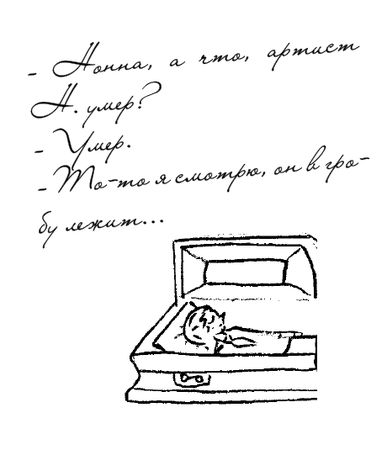 - Нонна, а что, артист
Н. умер?
- Умер.
- То-то я смотрю, он в гро-
бу лежит...